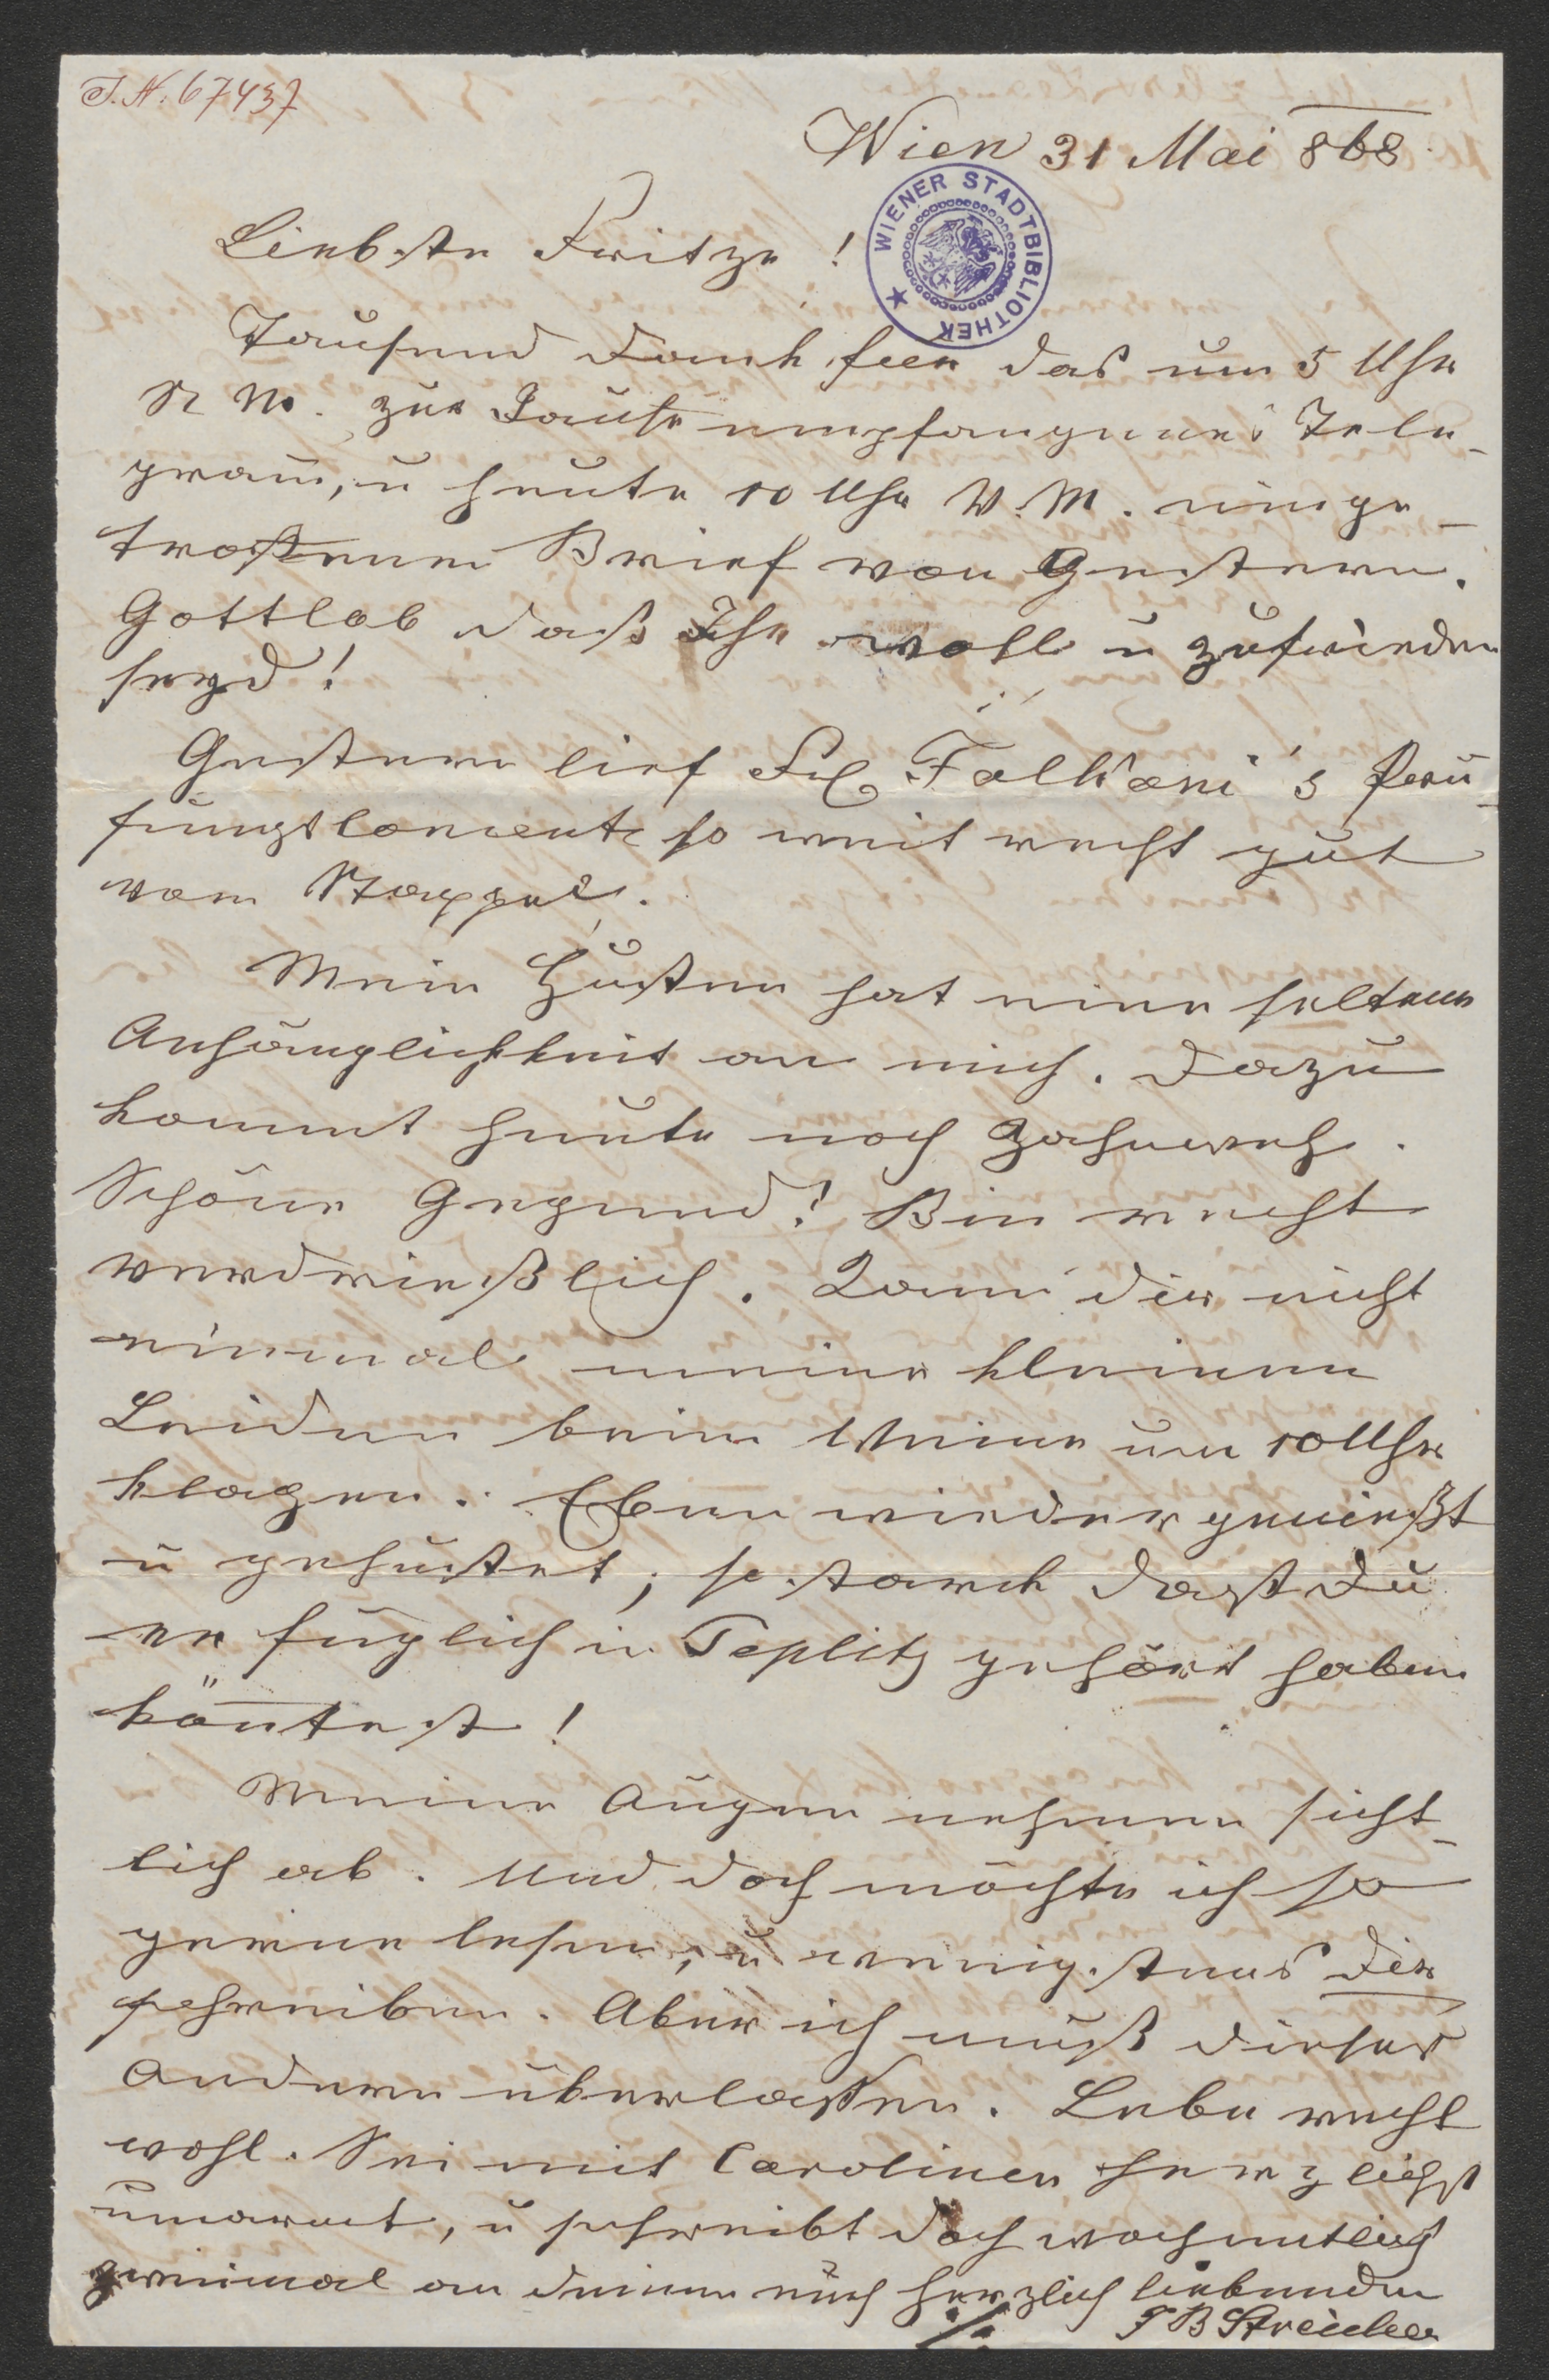 I.N. 67437
Wien 31 Mai 868.
WIENER STADTBIBLIOTHEK
Liebste Fritze!
Tausend Dank fuer das um 5 Uhr
N M. zur Jause empfangenes Tele-
gram̄, u heute 10 Uhr V.M. einge-
troffenen Brief von Gestern.
Gottlob daß Ihr wohl u zufrieden
seyd!
Gestern lief Frl Falkani's Prü-
fungsconcert so weit recht gut
vom Stappel.
Mein Husten hat eine seltene
Anhänglichkeit an mich. Dazu
kommt heute noch Zahnweh.
Schöne Gegend! Bin recht
verdrießlich. Kann dir nicht
einmal meine kleinen
Leiden beim Weine um 10 Uhr
klagen. Eben wieder genießt
u gehustet; so stark daß du
es füglich in Teplitz gehört haben
kön̄test!
Meine Augen nehmen sicht-
lich ab. Und doch möchte ich so
gerne lesen, u wenigstens dir
schreiben. Aber ich muß dieses
Andern überlassen. Lebe recht
wohl. Sei mit Carolinen herzlichst
umarmt, u schreibt doch wochentlich
zweimal an deinen euch herzlich liebenden
./. J B Streicher